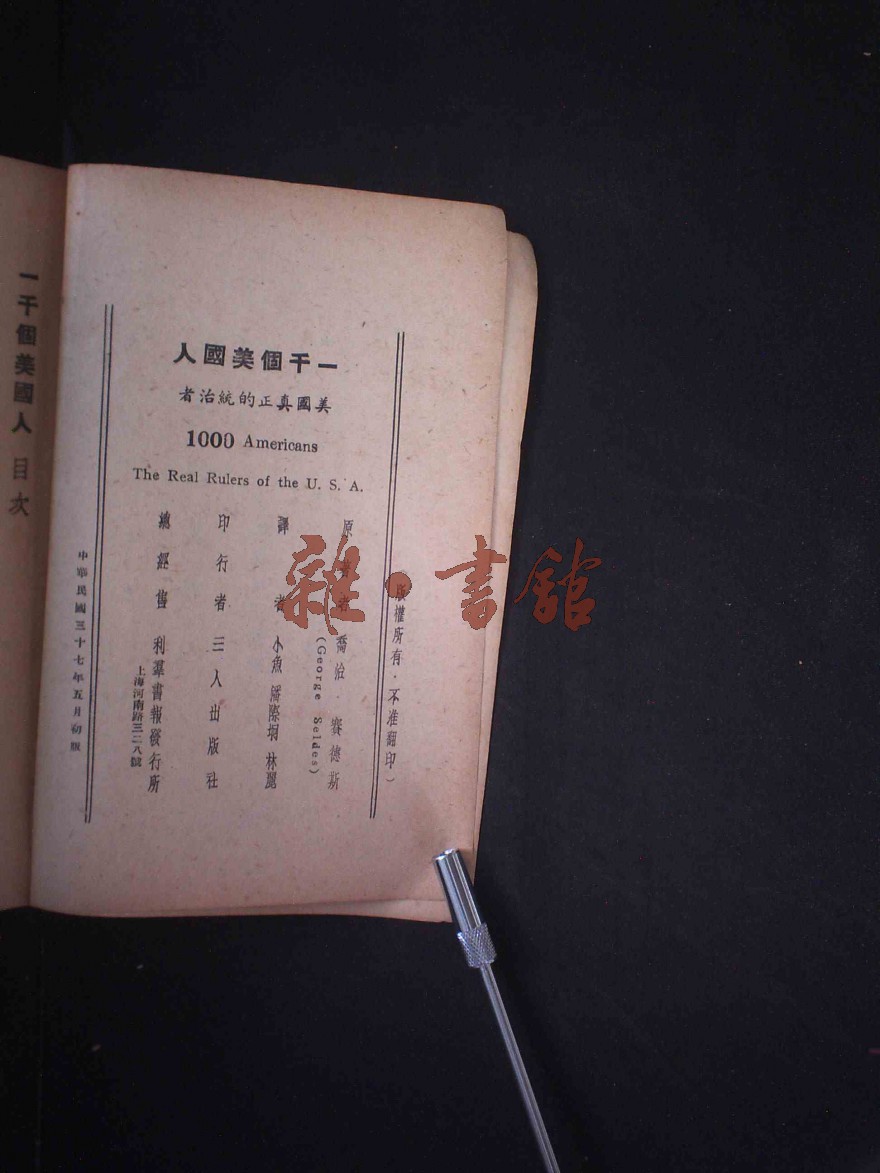 一千個美國人
美國真正的統治者
1000 Americans
The Real Rulers of the U. S. A.
版權所有・不准翻印)
原著者 喬治・賽德斯
(George Seldes)
譯者 小魚 潘際坰 林麗
印行者 三人出版社
總經售 利羣書報發行所
上海河南路三二八號
中華民國三十七年五月初版
一千個美國人 目次
雜・書館